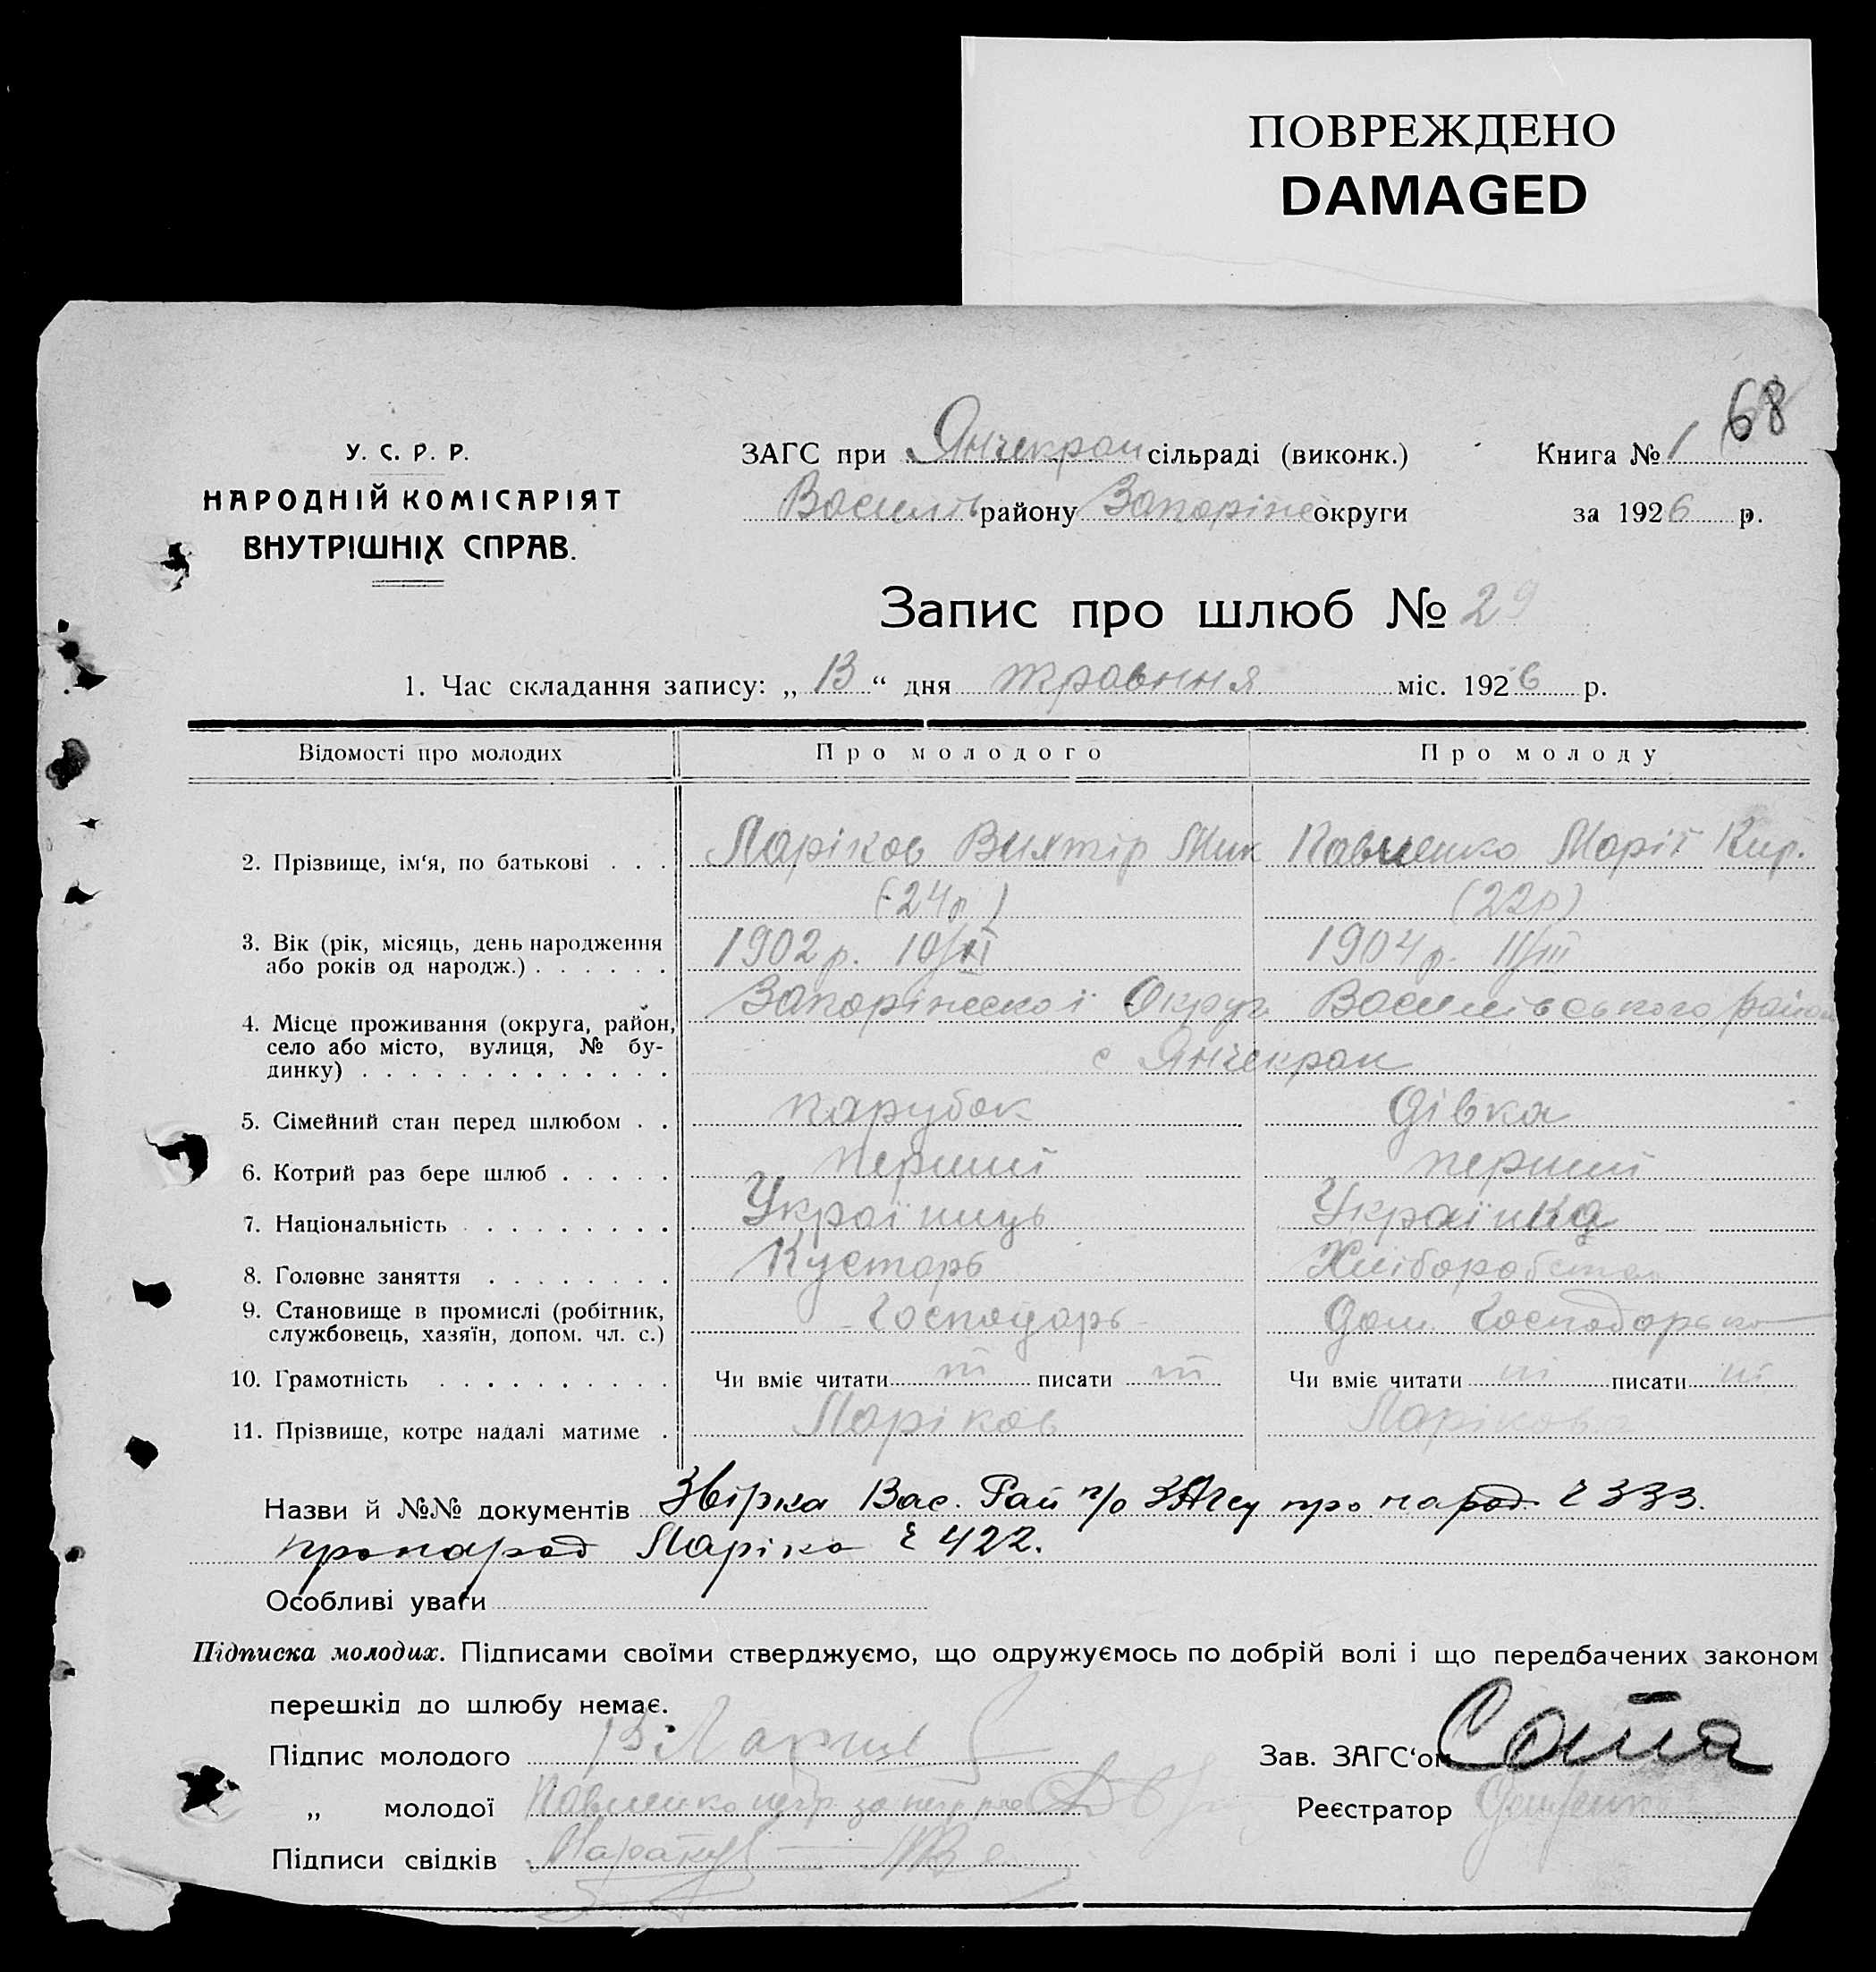 ПОВРЕЖДЕНО
DAMAGED
68
У. С. Р. Р.
НАРОДНІЙ КОМІСАРІЯТ
ВНУТРІШНІХ СПРАВ.
ЗАГС при Янчекрак сільраді (виконк.)
Книга № 1
Василів району Запоріже округи
за 1926 р.
Запис про шлюб № 29
1. Час складання запису: „ 13 “ дня травння міс. 1926 р.
Відомості про молодих
Про молодого
Про молоду
2. Прізвище, ім'я, по батькові . . .
Ларіков Вихтір Мик
Павленко Марії Кир.
(24 р)
(22 р)
3. Вік (рік, місяць, день народження або років од народж.) . . . . . .
1902 р. 10/XI
1904 р. 11/III
4. Місце проживання (округа, район, село або місто, вулиця, № будинку) . . . . . . . . . . . . .
Запоріжескої Округи Василівського район
с Янчекрак
5. Сімейний стан перед шлюбом . .
парубок
дівка
6. Котрий раз бере шлюб . . . . .
перший
перший
7. Національність . . . . . . . .
Україниць
Українка
8. Головне заняття . . . . . . . .
Кустарь
Хліборобство
9. Становище в промислі (робітник, службовець, хазяїн, допом. чл. с.)
Господарь
Дом. Господарько
10. Грамотність . . . . . . . . . .
Чи вміє читати ні писати ні
Чи вміє читати ні писати ні
11. Прізвище, котре надалі матиме .
Ларіков
Ларікова
Назви й №№ документів Звірка Вас. Рай п/о ЗАГсу про народ. č 333.
про народ Ларіко č 422.
Особливі уваги
Підписка молодих. Підписами своїми стверджуємо, що одружуємось по добрій волі і що передбачених законом
перешкід до шлюбу немає.
Підпис молодого В Ларик
Зав. ЗАГС'ом
„ молодої Павленко негр за негр
Реєстратор
Підписи свідків